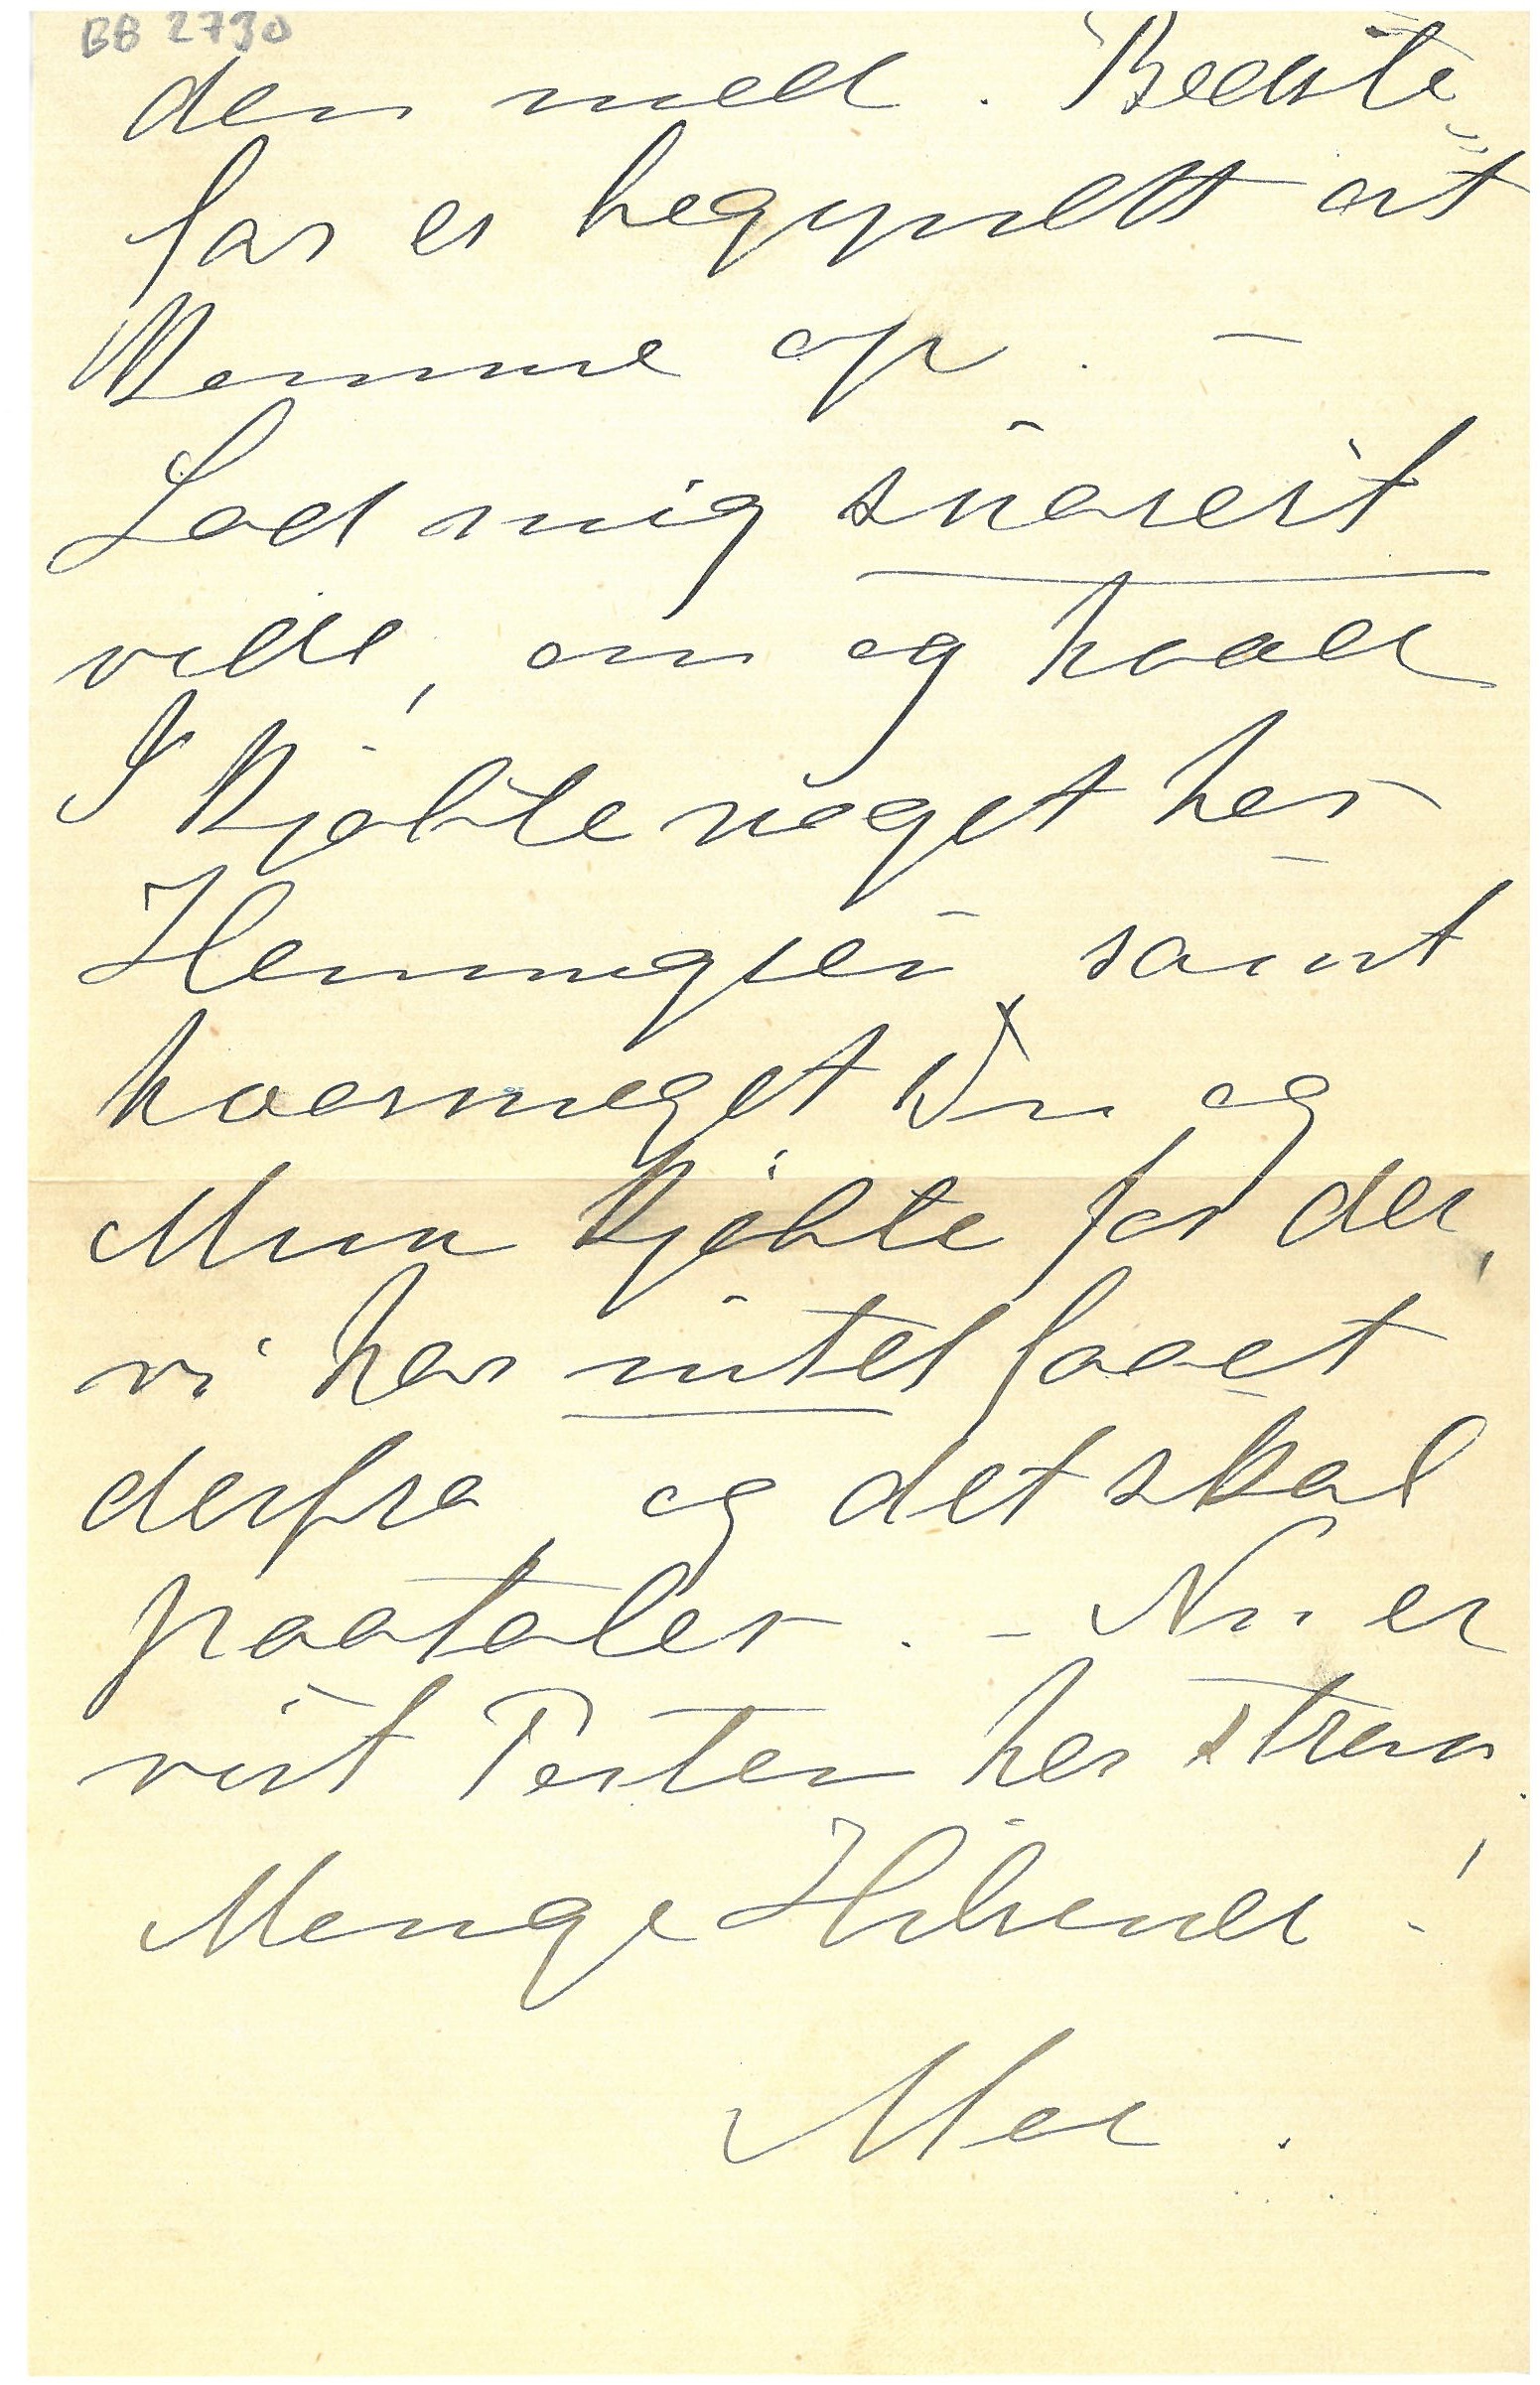 BB 2730
den med. Bedste-
far er begyndt at
komme op. -
Lad mig snarest
vide, om og hvad
I kjøbte noget hos
Henningsen, samt
hvormeget Du og
Mimi kjøbte for der,
vi har intet faaet
derfra, og det skal
paatales. - Nu er
vist Posten her strax.
Mange Hilsener!
Mor.